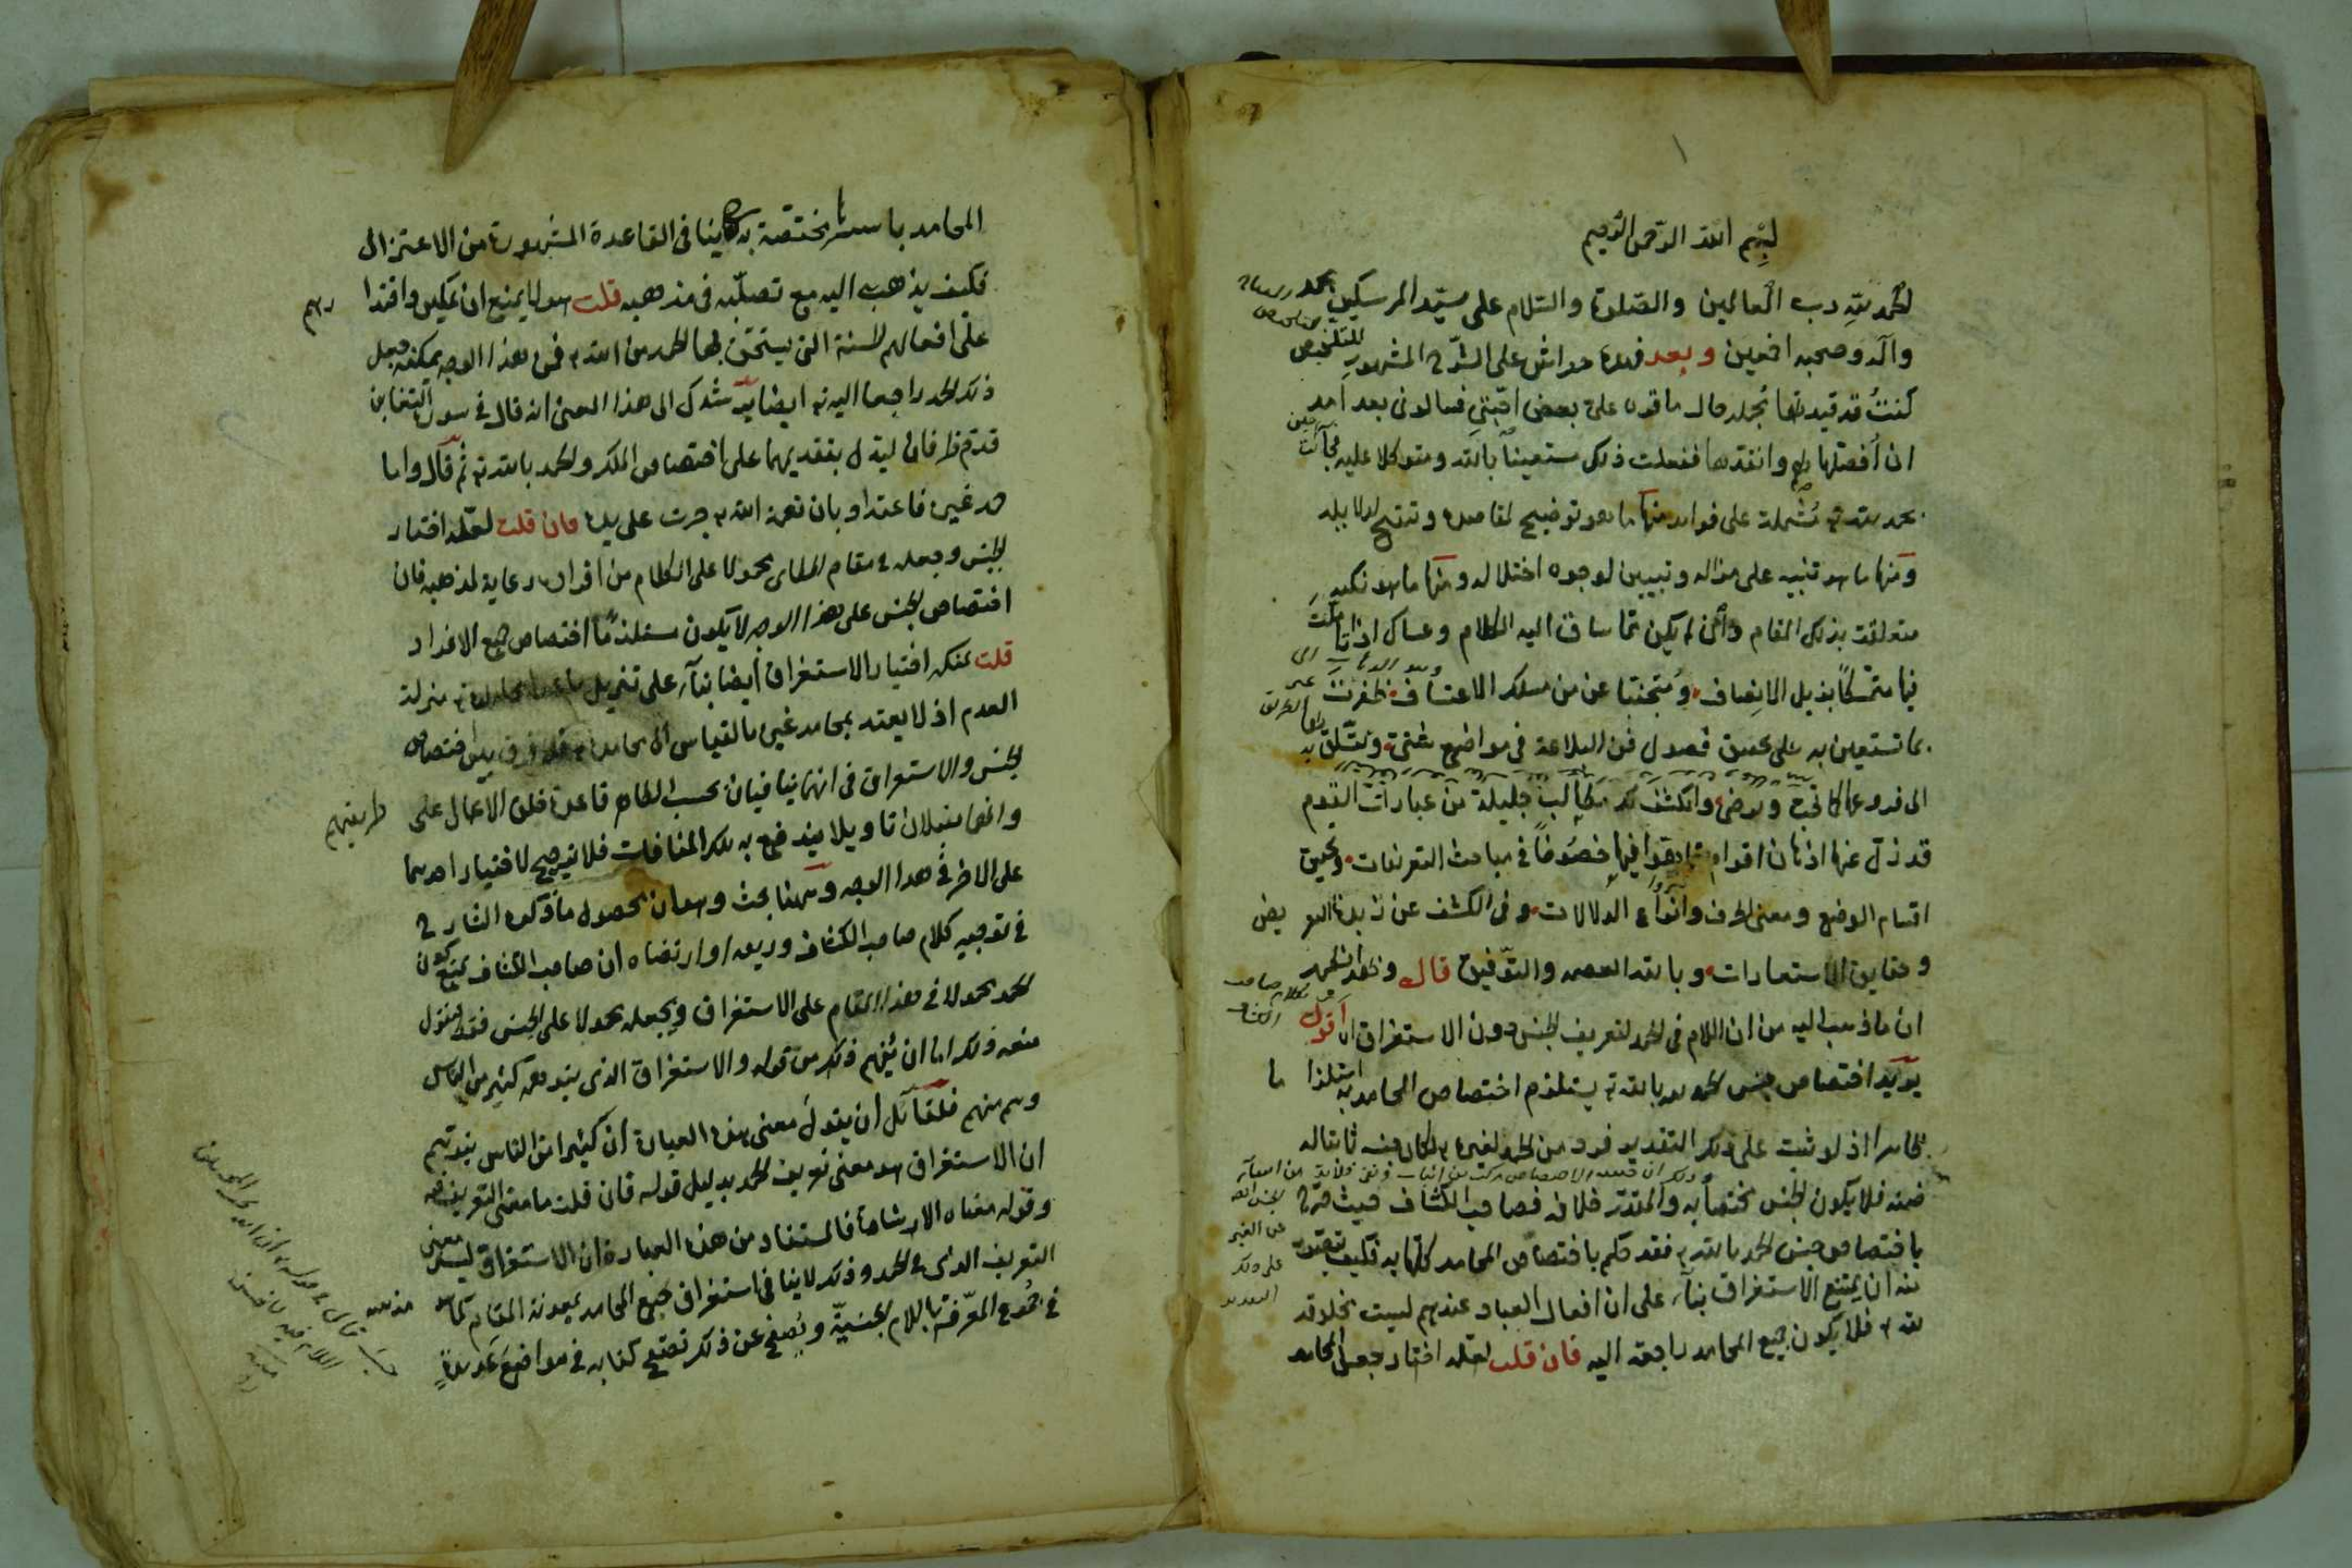 بسم الله الرحمن الرحيم
الحمد لله رب العالمين والصلوة والسلام على سيد المرسلين محمد
وآله وصحبه اجمعين وبعد فهذه حواش على الشرح المشهور للتلخيص
كنت قد قيدتها مجملة حال ما قرء على بعض احبتي فسالونى بعد امد
ان أفصلها لهم وانقدها ففعلت ذلك مستعينا بالله ومتوكلا عليه فجآءت
بحمد الله تع مشتملة على فوايد منها ما هو توضيح لمقاصده وتنقيح لدلايله
ومنها ما هو تنبيه على مزاله وتبيين لوجوه اختلاله ومنها ما هو نكت
متعلقة بذلك المقام وان لم يكن مما ساق اليه الكلام وعساك اذا تأملت
فيها متمسكا بذيل الانصاف ومتجنبا عن مسلك الاعتساف ظفرت
بما تستعين به على تحقيق فصول فن البلاغة فى مواضع شتى وتتسلق به
الى فروعها كما تحب وترضى وانكشف لك مطالب جليلة من عبارات القوم
قد زل عنها اذهان اقوام فيها خصوصا فى مباحث التعريفات وتحقيق
اقسام الوضع ومعنى الحرف وانواع الدلالات وفى الكشف عن زبدة التعريض
وحقايق الاستعارات وبالله العصمة والتوفيق قال وبهذا يظهر
ان ما ذهب اليه من ان اللام فى الحمد لتعريف الجنس دون الاستغراق اقول
يريد اختصاص جنس الحمد بالله تع يستلزم اختصاص المحامد به استلزاما
ظاهرا اذ لو ثبت على ذلك التقدير فرد من الحمد لغيره تع لكان جنسه ثابتا له فى
ضمنه فلا يكون الجنس مختصا به والمقدر خلافه فصاحب الكشاف حيث صرح
باختصاص جنس الحمد بالله تع فقد حكم باختصاص المحامد كلها به فكيف يتصور
منه ان يمنع الاستغراق بناء على ان افعال العباد عندهم ليست مخلوقة
لله تع فلا يكون جميع المحامد راجعة اليه فان قلت لعله اختار جعل المحامد
المحامد باسرها مختصة به ينافى القاعدة المشهورة من الاعتزال
فكيف يذهب اليه مع تصلبه فى مذهبه قلت هو لا يمنع ان تمكين واقدارهم
على افعالهم الحسنة التى يستحق بها الحمد من الله تع فمن هذا الوجه يمكنه جعل
ذلك الحمد راجعا اليه تع ايضا يرشدك الى هذا المعنى انه قال فى سورة التغابن
قدم الظرفان ليدل بتقديمهما على اختصاص الملك والحمد بالله تع ثم قال واما
حمد غيره فاعتداد بان نعمة الله تع جرت على يده فان قلت لعله اختار
الجنس وجعله فى مقام الخطابى محمولا على الكامل من افراده رعاية لمذهبه فان
اختصاص الجنس على هذا الوجه لا يكون مستلزما اختصاص جميع الافراد
قلت يمكنه اختيار الاستغراق ايضا بناء على تنزيل ما عدا محامده تع منزلة
العدم اذ لا يعتد بمحامد غيره بالقياس الى محامده تع فلا فرق بين اختصاص
الجنس والاستغراق فى انهما ينافيان بحسب الظاهر قاعدة خلق الاعمال على طريقتهم
وانهما يقبلان تاويلا يندفع به تلك المنافات فلا ترجيح لاختيار احدهما
على الاخر فى هذا الوجه وههنا بحث وهو ان محصول ما ذكره الشارح
فى توجيه كلام صاحب الكشاف وارتضاه ان صاحب الكشاف يمنع كون
الحمد محمولا فى هذا المقام على الاستغراق ويجعله محمولا على الجنس فنقول
منعه ذلك اما ان يفهم ذلك من قوله والاستغراق الذى يتوهمه كثير من الناس
وهم منهم فلقائل ان يقول معنى هذه العبارة ان كثيرا من الناس يتوهم
ان الاستغراق هو معنى تعريف الحمد بدليل قوله فان قلت ما معنى التعريف فيه
وقوله معناه الاشارة فالمستفاد من هذه العبارة ان الاستغراق ليس معنى
التعريف الذى فى الحمد وذلك لا ينافى استغراق جميع المحامد بمعونة المقام كما هو مذهبه
فى الجموع المعرفة باللام الجنسية ويفصح عن ذلك تصفح كتابه فى مواضع عديدة